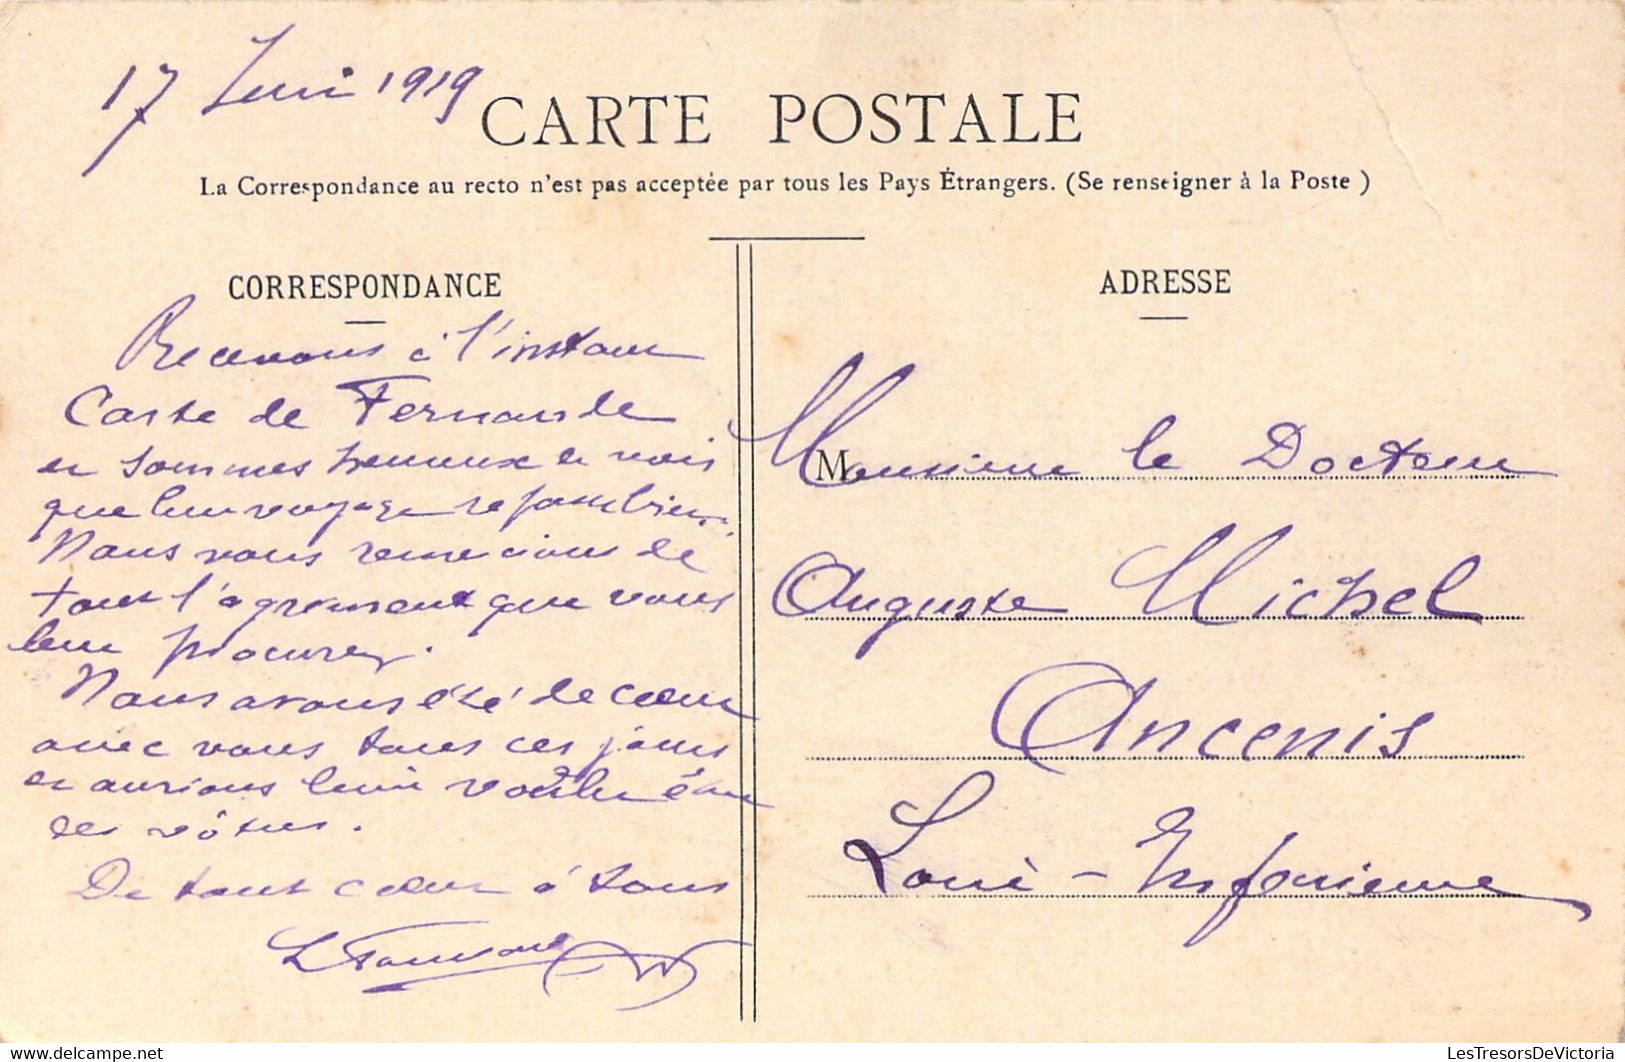 17 Juin 1919
CARTE POSTALE
La Correspondance au recto n'est pas acceptée par tous les Pays Étrangers. (Se renseigner à la Poste )
CORRESPONDANCE
Recevons à l'instant
Carte de Fernande
et sommes heureux de voir
que leur voyage se passe bien.
Nous vous remercions de
tout l'agrément que vous
leur procurez.
Nous avons été de cœur
avec vous tous ces jours
et aurions bien voulu être
des vôtres.
De tout cœur à tous
ADRESSE
Monsieur le Docteur
Auguste Michel
Ancenis
Loire-Inférieure
LesTresorsDeVictoria
www.delcampe.net